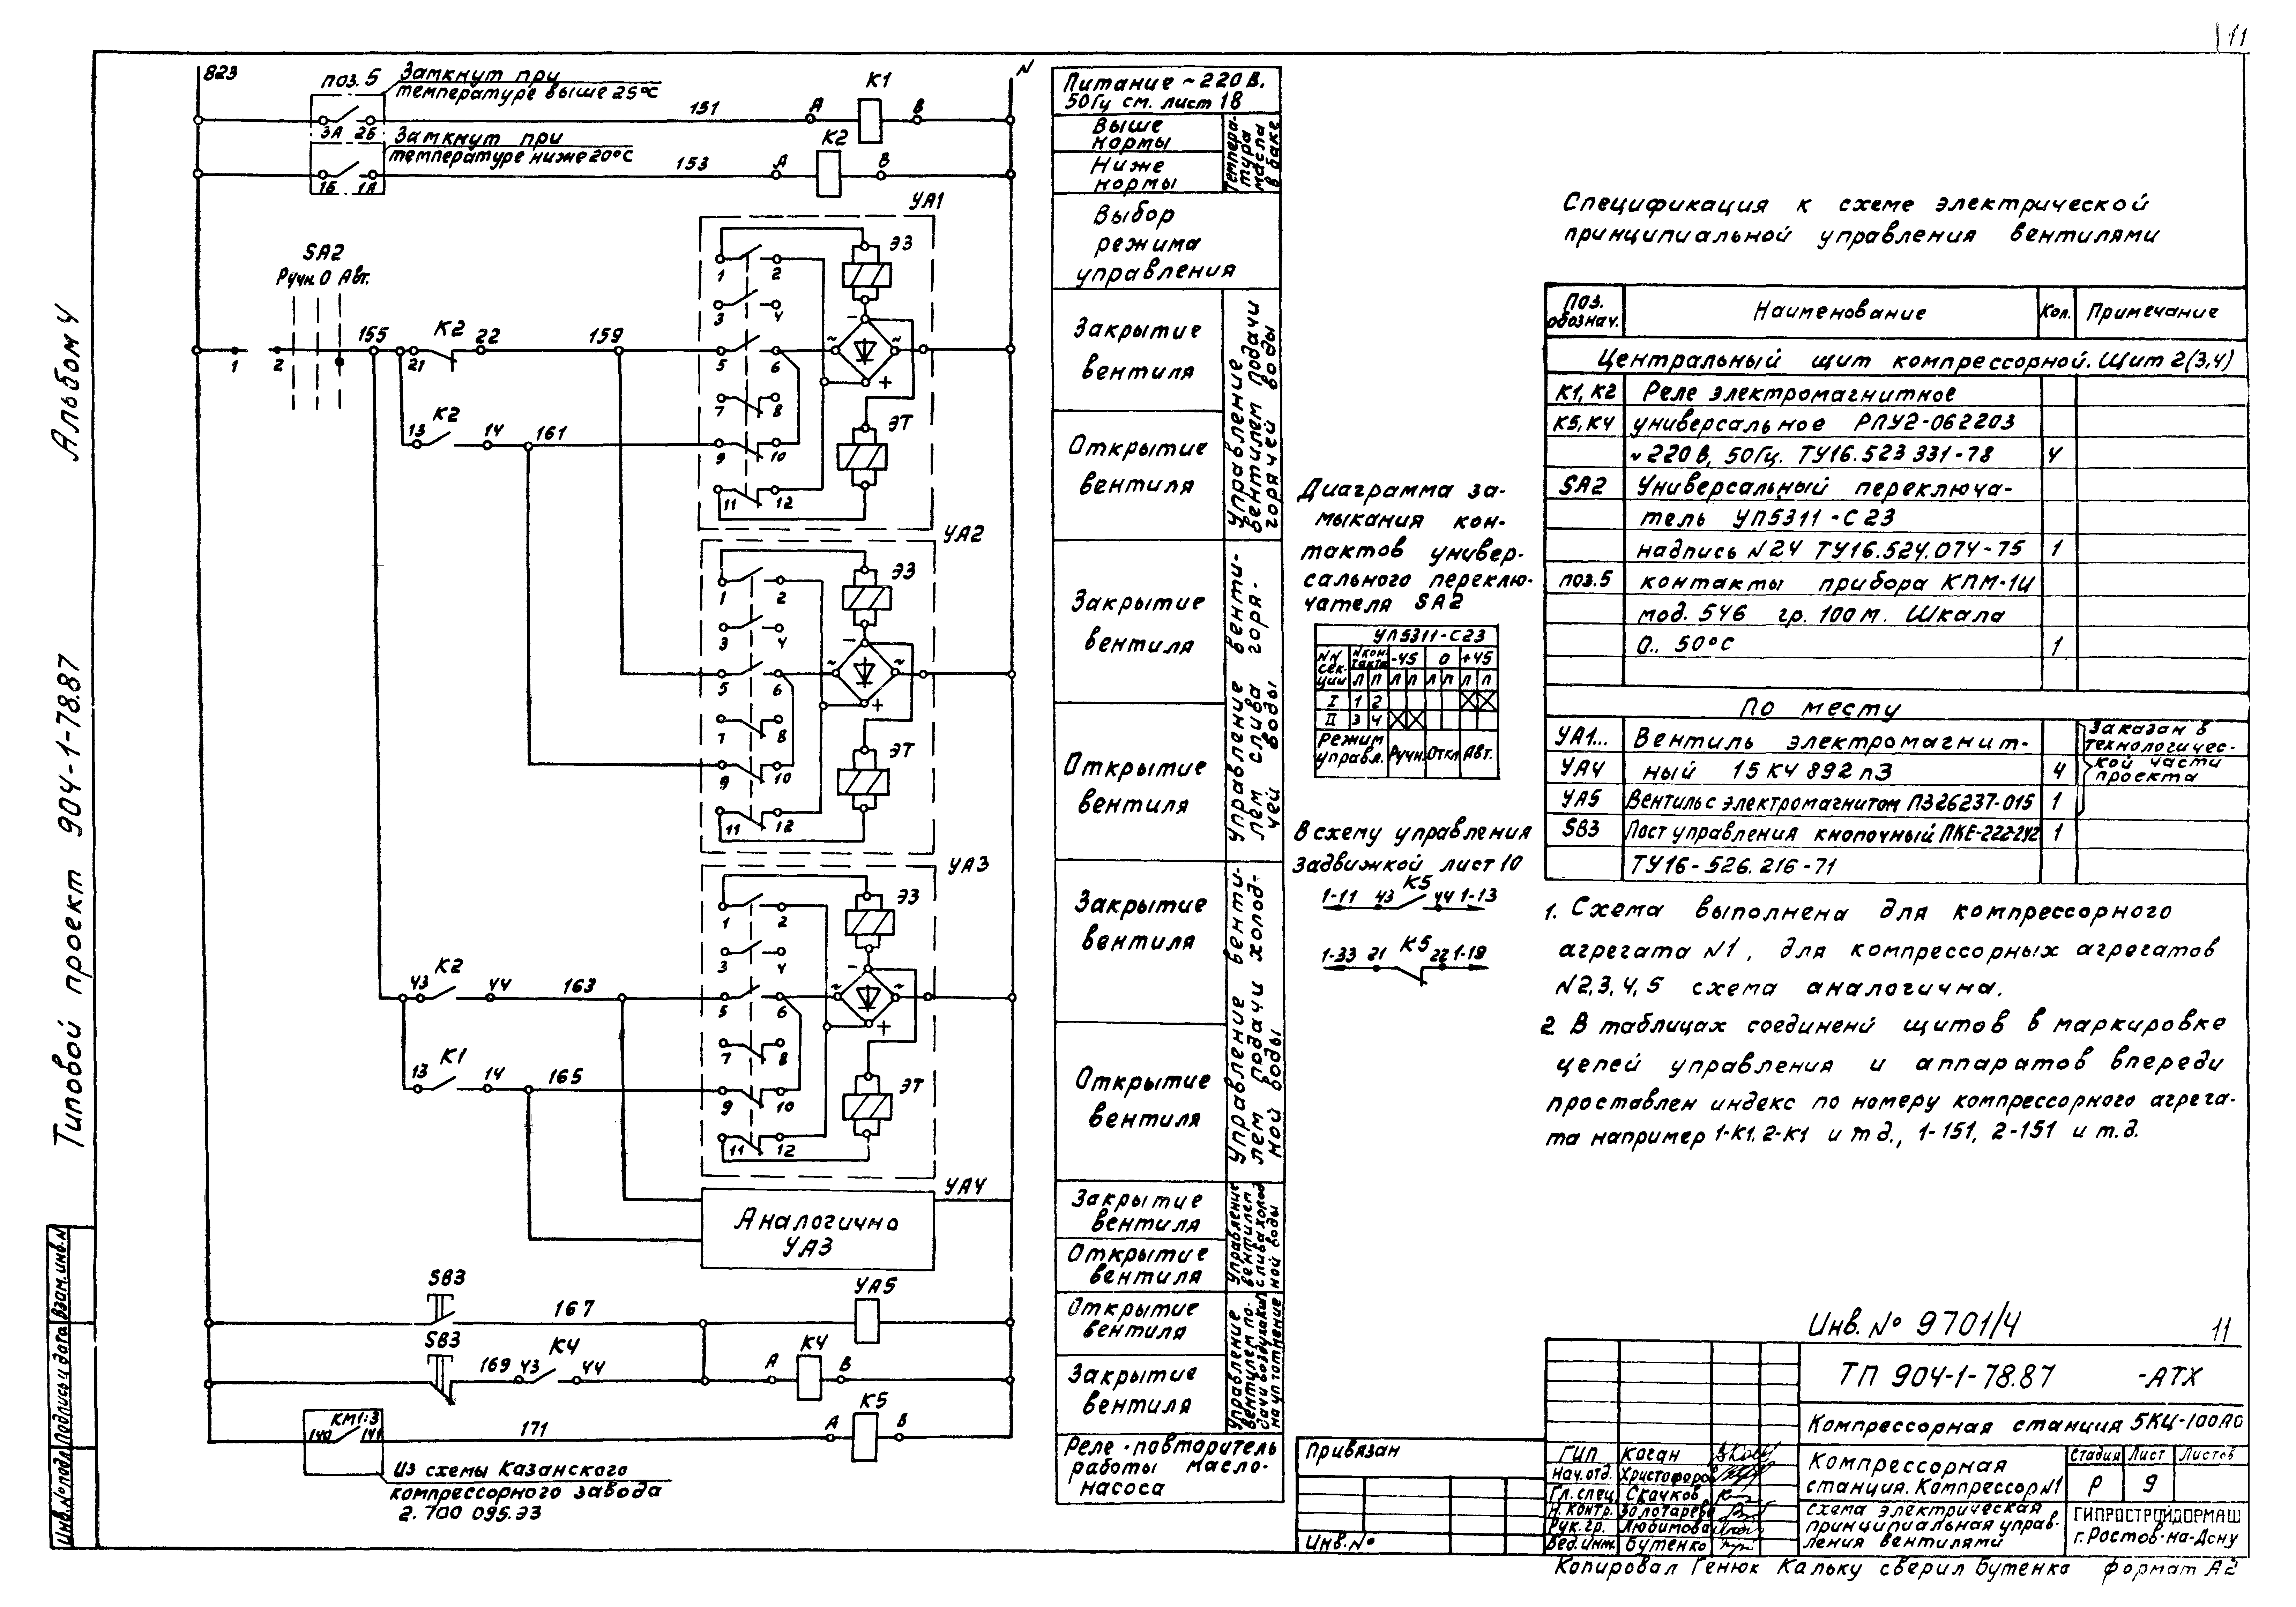 11
Альбом 4
Типовой проект 904-1-78.87
Инв.№подл.
Подпись и дата
Взам.инв.№
823
N
поз.5
Замкнут при
температуре выше 25°С
3А 2Б
151
А
К1
В
Замкнут при
температуре ниже 20°С
1Б 1А
153
А
К2
В
SA2
Ручн. 0 Авт.
1
2
155
21
К2
22
159
13
К2
14
161
УА1
1 2
3 4
5 6
7 8
9 10
11 12
ЭЗ
ЭТ
~ ~
-
+
УА2
1 2
3 4
5 6
7 8
9 10
11 12
ЭЗ
ЭТ
~ ~
-
+
УА3
43
К2
44
163
13
К1
14
165
1 2
3 4
5 6
7 8
9 10
11 12
ЭЗ
ЭТ
~ ~
-
+
УА4
Аналогично
УА3
SB3
167
УА5
SB3
169
43
К4
44
А
К4
В
КМ1:3
140 141
171
А
К5
В
Из схемы Казанского
компрессорного завода
2.700 095.ЭЗ
Питание ~220В,
50Гц см. лист 18
Выше
нормы
Ниже
нормы
Темпера-
тура
масла
в баке
Выбор
режима
управления
Закрытие
вентиля
Открытие
вентиля
Управление
вентилем подачи
горячей воды
Закрытие
вентиля
Открытие
вентиля
Управление венти-
лем слива горя-
чей воды
Закрытие
вентиля
Открытие
вентиля
Управление венти-
лем подачи холод-
ной воды
Закрытие
вентиля
Открытие
вентиля
Управление
вентилем
слива холод
ной воды
Открытие
вентиля
Закрытие
вентиля
Управление
вентилем по-
дачи воздуха
на уплотнение
Реле-повторитель
работы масло-
насоса
Диаграмма за-
мыкания кон-
тактов универ-
сального переклю-
чателя SA2
УП5311-С23
NN сек-
ции
N кон-
такта
-45 0 +45
Л П Л П Л П Л П
I 1 2
II 3 4
Режим
управл.
Ручн. Откл Авт.
В схему управления
задвижкой лист 10
1-11 43 К5 44 1-13
1-33 21 К5 22 1-19
Спецификация к схеме электрической
принципиальной управления вентилями
Поз.
обознач.
Наименование
Кол.
Примечание
Центральный щит компрессорной. Щит 2(3,4)
К1,К2 Реле электромагнитное
К5,К4 универсальное РПУ2-062203
~220В, 50Гц. ТУ16.523 331-78 4
SA2 Универсальный переключа-
тель УП5311-С23
надпись N24 ТУ16.524.074-75 1
поз.5 контакты прибора КПМ-1И
мод. 546 гр. 100М. Шкала
0.. 50°С 1
По месту
УА1... Вентиль электромагнит-
УА4 ный 15 КЧ 892 п3 4
УА5 Вентиль с электромагнитом ПЗ26237-015 1
Заказан в
технологичес-
кой части
проекта
SB3 Пост управления кнопочный ПКЕ-222-2У2 1
ТУ16-526.216-71
1. Схема выполнена для компрессорного
агрегата №1, для компрессорных агрегатов
№2,3,4,5 схема аналогична.
2 В таблицах соединений щитов в маркировке
цепей управления и аппаратов впереди
проставлен индекс по номеру компрессорного агрега-
та например 1-К1, 2-К1 и т.д., 1-151, 2-151 и т.д.
Инв. № 9701/4
11
ТП 904-1-78.87 -АТХ
Компрессорная станция 5КЦ-100А0
Компрессорная
станция. Компрессор №1
Стадия Лист Листов
Р 9
схема электрическая
принципиальная управ-
ления вентилями
ГИПРОСТРОЙДОРМАШ
г. Ростов-на-Дону
ГИП Коган
Нач.отд. Христофоров
Гл.спец. Скачков
Н.контр. Золотарева
Рук.гр. Любимова
Вед.инж. Бутенко
Привязан
Инв.№
Копировал Генюк Кальку сверил Бутенко формат А2